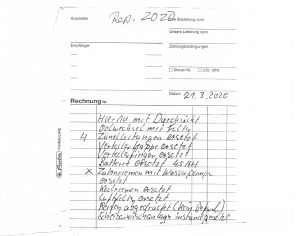 Aussteller
Rep. 2020
Ihre Bestellung vom
Unsere Lieferung vom
Empfänger
Zahlungsbedingungen
Steuer-Nr.
USt.-IdNr.
Datum 21.3.2020
Rechnung Nr.
mit Durchsicht
Oelwechsel mit Filter
4 Zündleitungen ersetzt
Verteilerkappe ersetzt
Verteilerfinger ersetzt
Batterie ersetzt 45 AH
x Zahnriemen mit Wasserpumpe
ersetzt
Keilriemen ersetzt
Luftfilter ersetzt
abgefracht
Scheibenwischanlage instandgesetzt